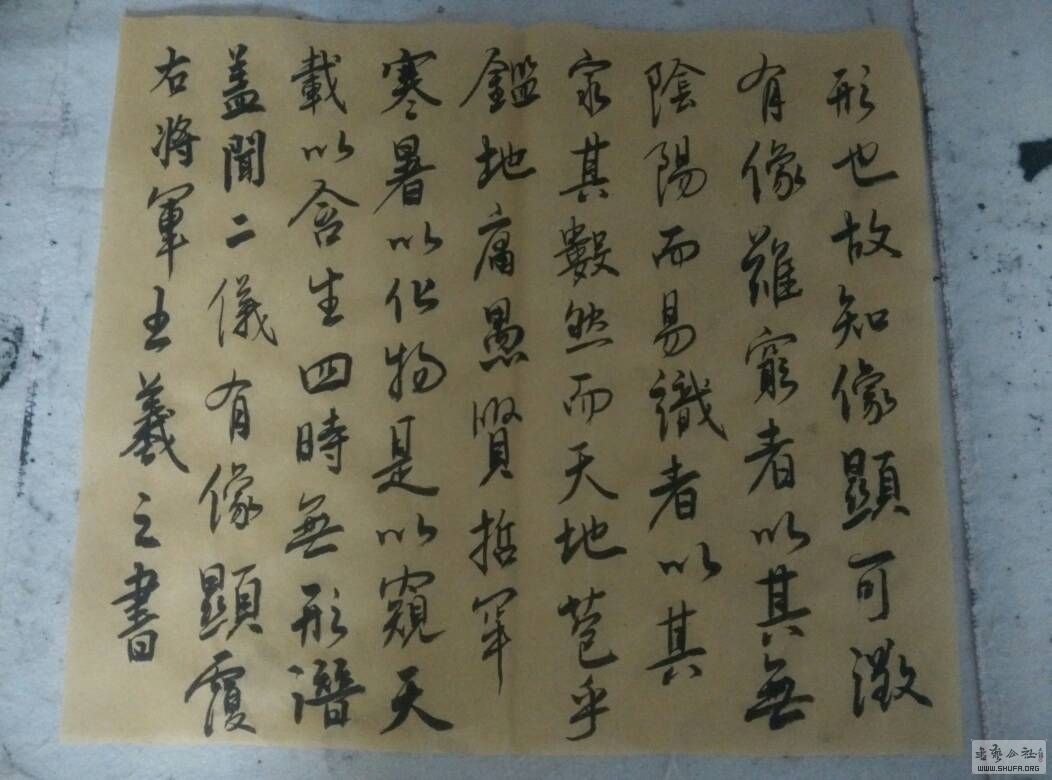 右將軍王羲之書
盖聞二儀有像顯覆
載以含生四時無形潛
寒暑以化物是以窺天
鑑地庸愚賢哲罕
窮其數然而天地苞乎
陰陽而易識者以其
有像難窮者以其無
形也故知像顯可徵
書藝公社
WWW.SHUFA.ORG